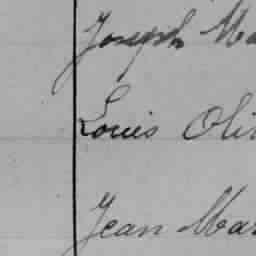 Joseph Ma
Louis Oli
Jean Mar